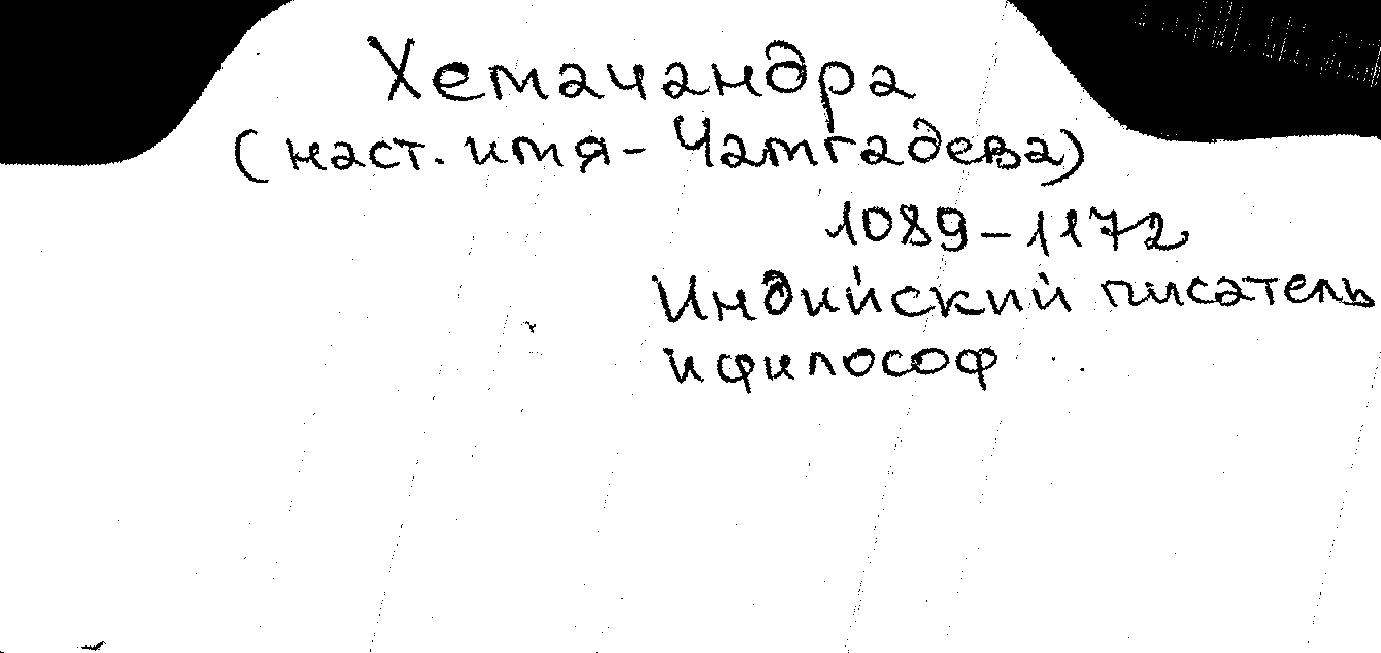 Хемачандра
(наст. имя - Чамгадева)
1089-1172
Индийский писатель
и философ